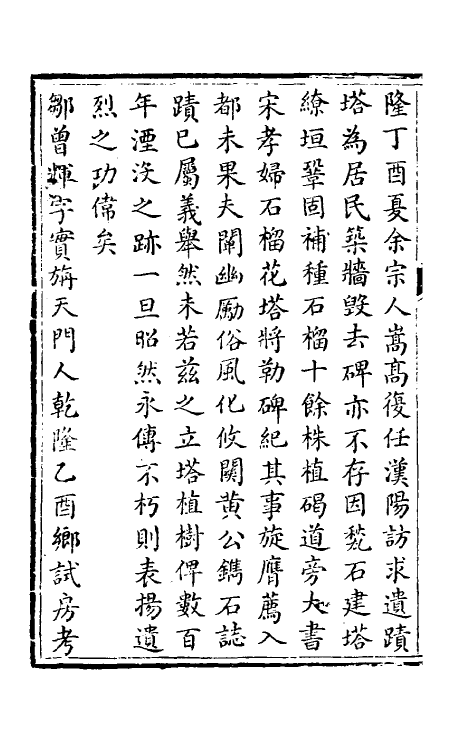 隆丁酉夏余宗人嵩高復任漢陽訪求遺蹟
塔為居民築牆毁去碑亦不存因甃石建塔
繚垣鞏固補種石榴十餘株植碣道旁大書
宋孝婦石榴花塔將勒碑紀其事旋膺薦入
都未果夫闡幽勵俗風化攸關黃公鐫石誌
蹟已屬義舉然未若兹之立塔植樹俾數百
年湮没之跡一旦昭然永傳不朽則表揚遺
烈之功偉矣
鄒曾輝字實旃天門人乾隆乙酉鄉試房考